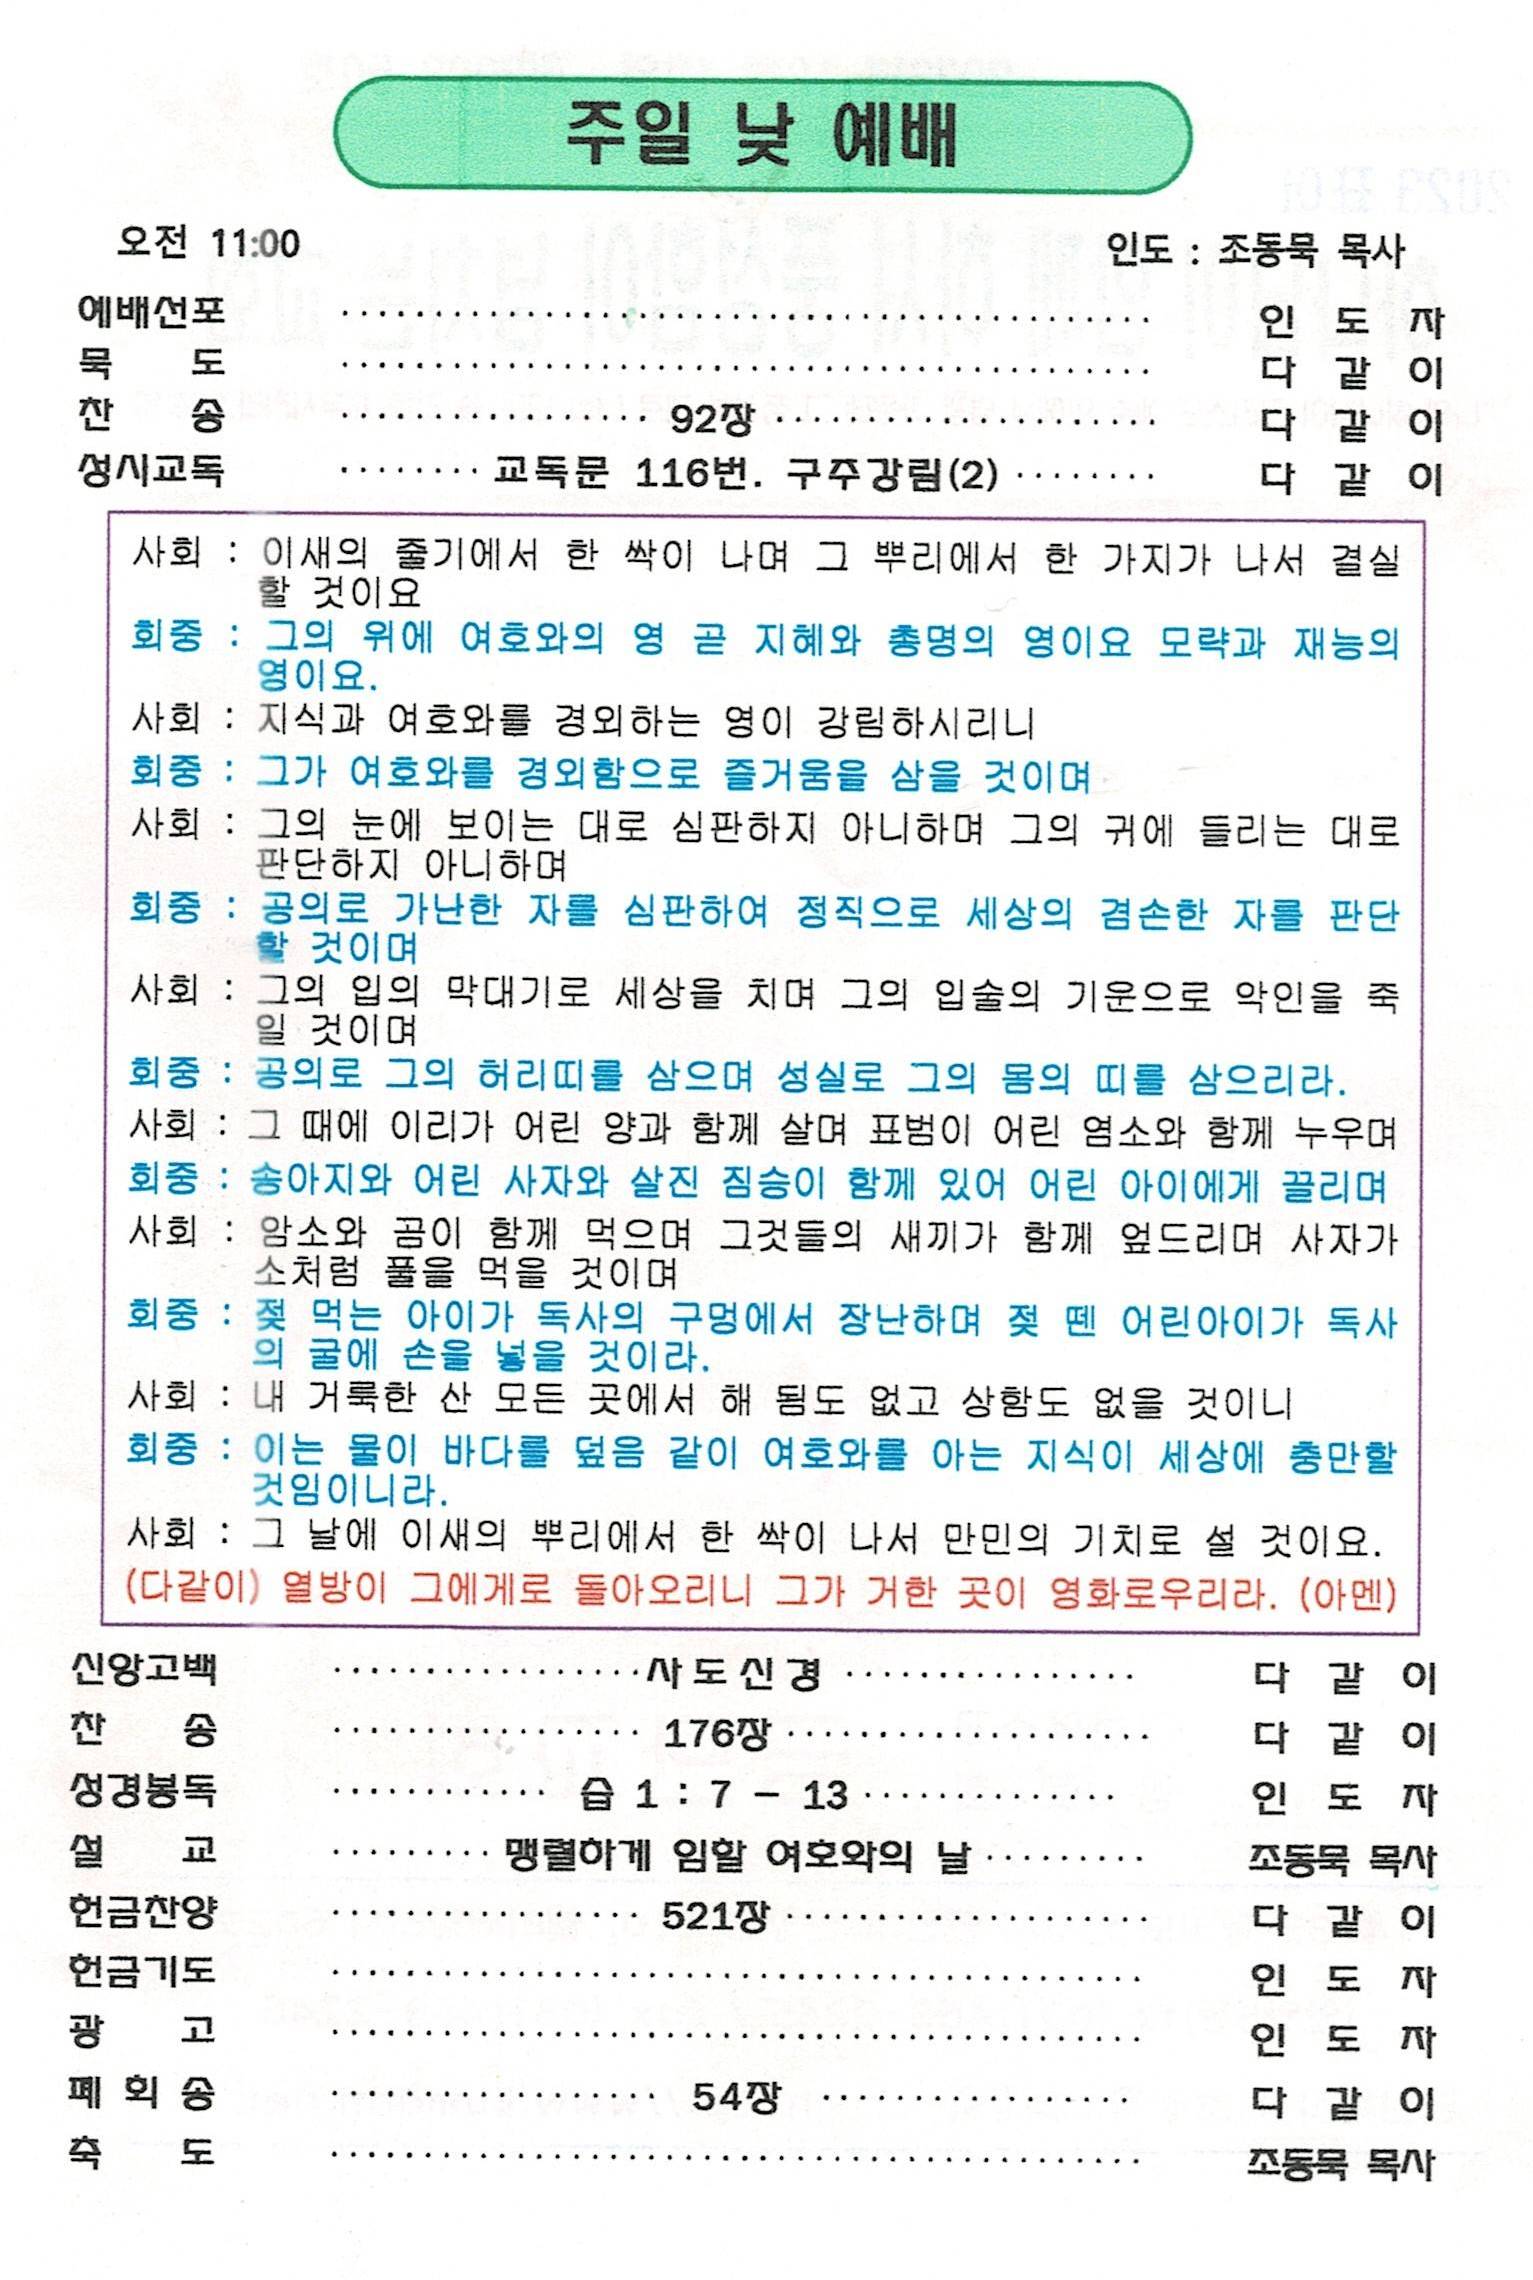 주일 낮 예배
오전 11:00 인도 : 조동묵 목사
예배선포 ············································ 인 도 자
묵 도 ············································ 다 같 이
찬 송 ················· 92장 ····················· 다 같 이
성시교독 ········ 교독문 116번. 구주강림(2) ········ 다 같 이
사회 : 이새의 줄기에서 한 싹이 나며 그 뿌리에서 한 가지가 나서 결실
할 것이요
회중 : 그의 위에 여호와의 영 곧 지혜와 총명의 영이요 모략과 재능의
영이요.
사회 : 지식과 여호와를 경외하는 영이 강림하시리니
회중 : 그가 여호와를 경외함으로 즐거움을 삼을 것이며
사회 : 그의 눈에 보이는 대로 심판하지 아니하며 그의 귀에 들리는 대로
판단하지 아니하며
회중 : 공의로 가난한 자를 심판하여 정직으로 세상의 겸손한 자를 판단
할 것이며
사회 : 그의 입의 막대기로 세상을 치며 그의 입술의 기운으로 악인을 죽
일 것이며
회중 : 공의로 그의 허리띠를 삼으며 성실로 그의 몸의 띠를 삼으리라.
사회 : 그 때에 이리가 어린 양과 함께 살며 표범이 어린 염소와 함께 누우며
회중 : 송아지와 어린 사자와 살진 짐승이 함께 있어 어린 아이에게 끌리며
사회 : 암소와 곰이 함께 먹으며 그것들의 새끼가 함께 엎드리며 사자가
소처럼 풀을 먹을 것이며
회중 : 젖 먹는 아이가 독사의 구멍에서 장난하며 젖 뗀 어린아이가 독사
의 굴에 손을 넣을 것이라.
사회 : 내 거룩한 산 모든 곳에서 해 됨도 없고 상함도 없을 것이니
회중 : 이는 물이 바다를 덮음 같이 여호와를 아는 지식이 세상에 충만할
것임이니라.
사회 : 그 날에 이새의 뿌리에서 한 싹이 나서 만민의 기치로 설 것이요.
(다같이) 열방이 그에게로 돌아오리니 그가 거한 곳이 영화로우리라. (아멘)
신앙고백 ·················사도신경 ················ 다 같 이
찬 송 ················· 176장 ···················· 다 같 이
성경봉독 ············ 습 1 : 7 - 13 ·············· 인 도 자
설 교 ········· 맹렬하게 임할 여호와의 날 ········· 조동묵 목사
헌금찬양 ················· 521장 ···················· 다 같 이
헌금기도 ············································ 인 도 자
광 고 ············································ 인 도 자
폐 회 송 ·················· 54장 ················· 다 같 이
축 도 ············································ 조동묵 목사